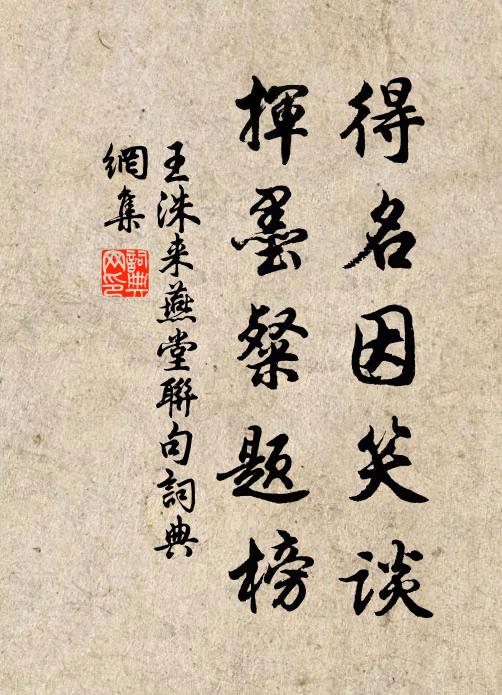 得名因笑談
揮墨粲題榜
王洙来燕堂聯句詞典
網集
詞典
网印